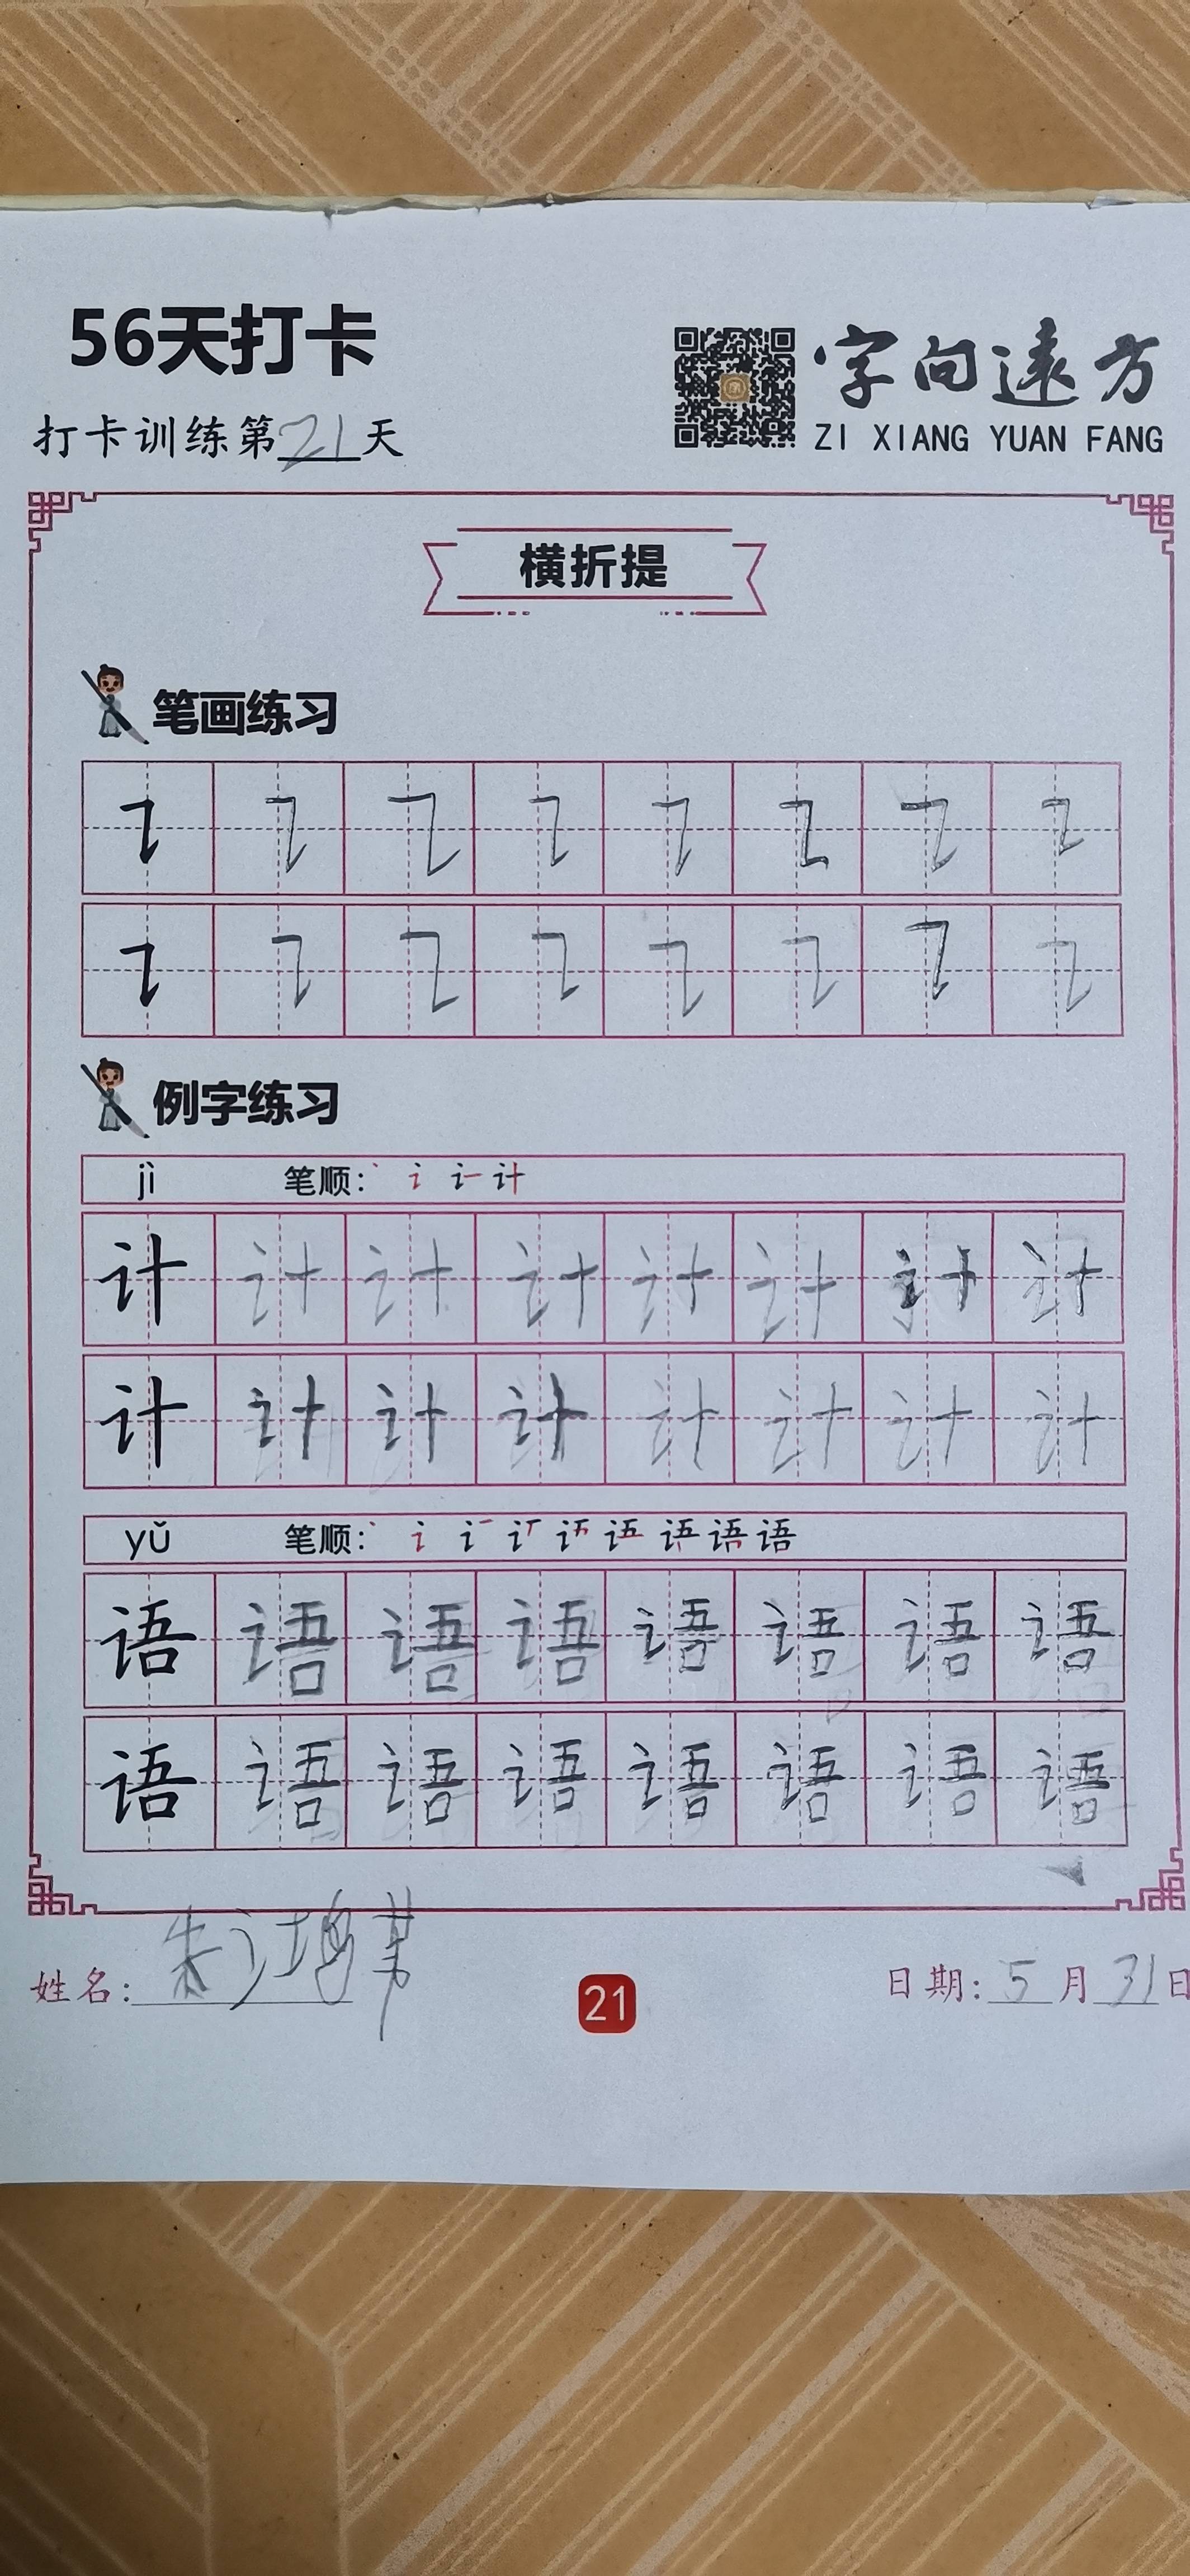 56天打卡
字向遠方
ZI XIANG YUAN FANG
打卡训练第21天
横折提
笔画练习
例字练习
jì 笔顺: 计
计 计 计 计 计 计 计 计
计 计 计 计 计 计 计 计
yǔ 笔顺: 语
语 语 语 语 语 语 语 语
语 语 语 语 语 语 语 语
姓名:
21
日期: 5月31日